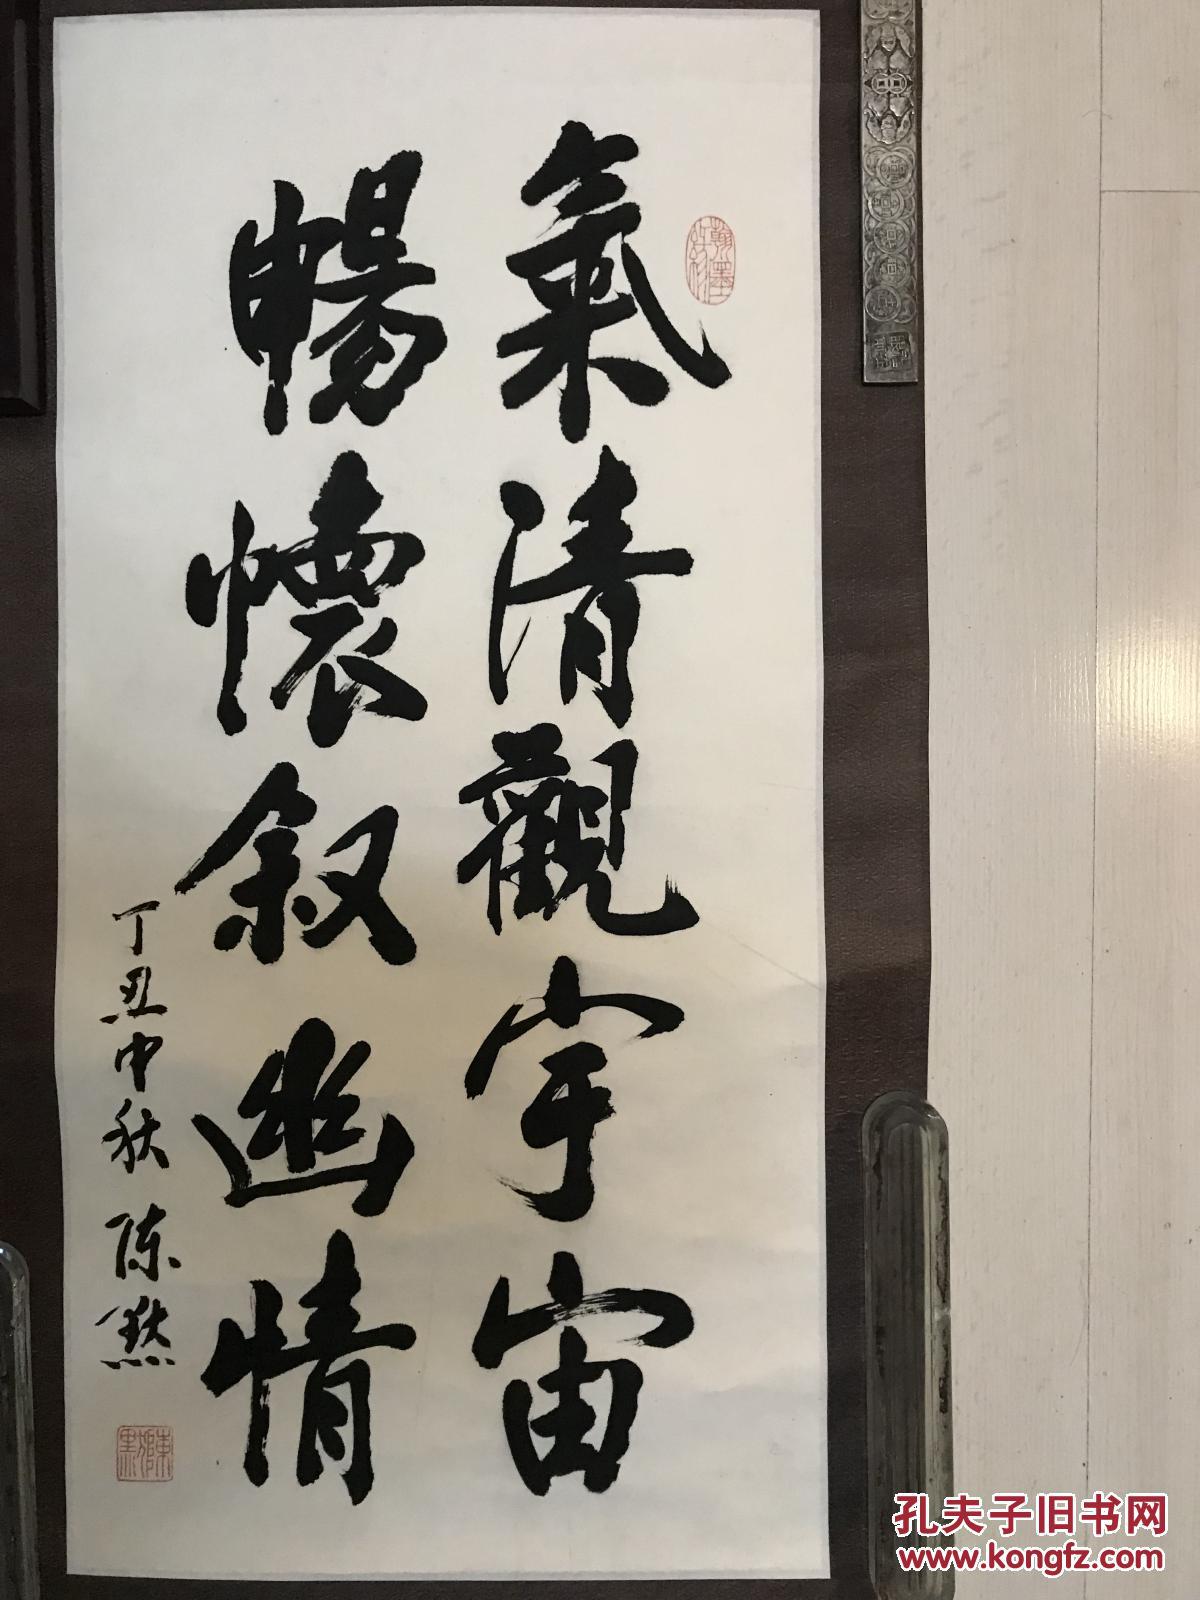 氣清觀宇宙
暢懷叙幽情
丁丑中秋 陈默
翰墨
孔夫子旧书网
www.kongfz.com